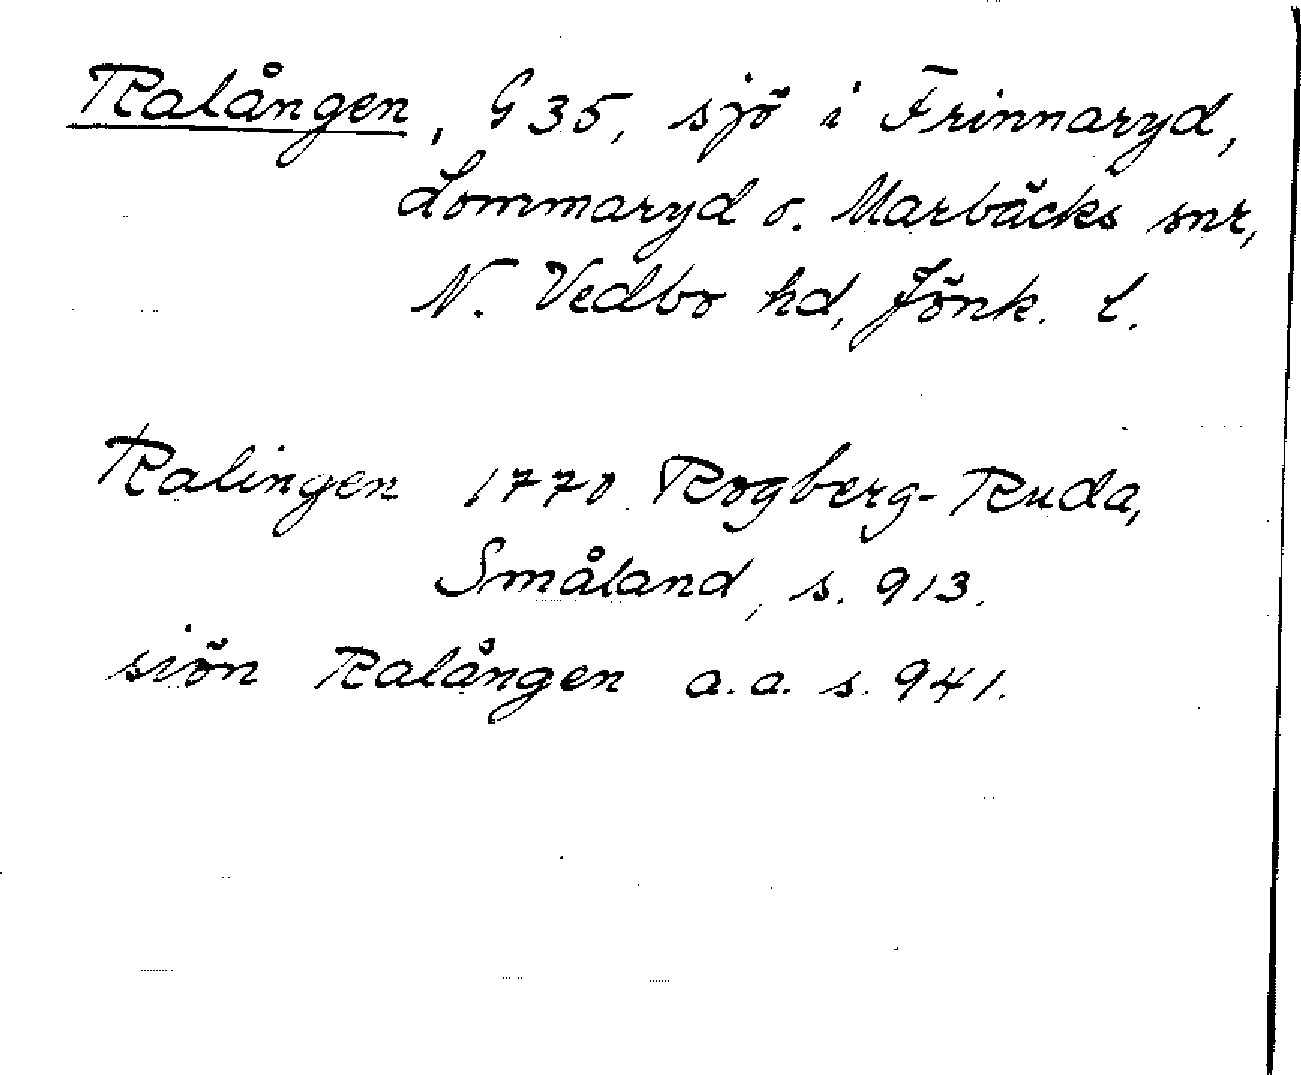 Ralången, G 35, sjö i Frinnaryd,
Lommaryd o. Marbäcks snr,
N. Vedbo hd, Jönk. l.
Ralingen 1770 Rogberg-Ruda,
Småland, s. 913.
siön Ralången a.a. s. 941.